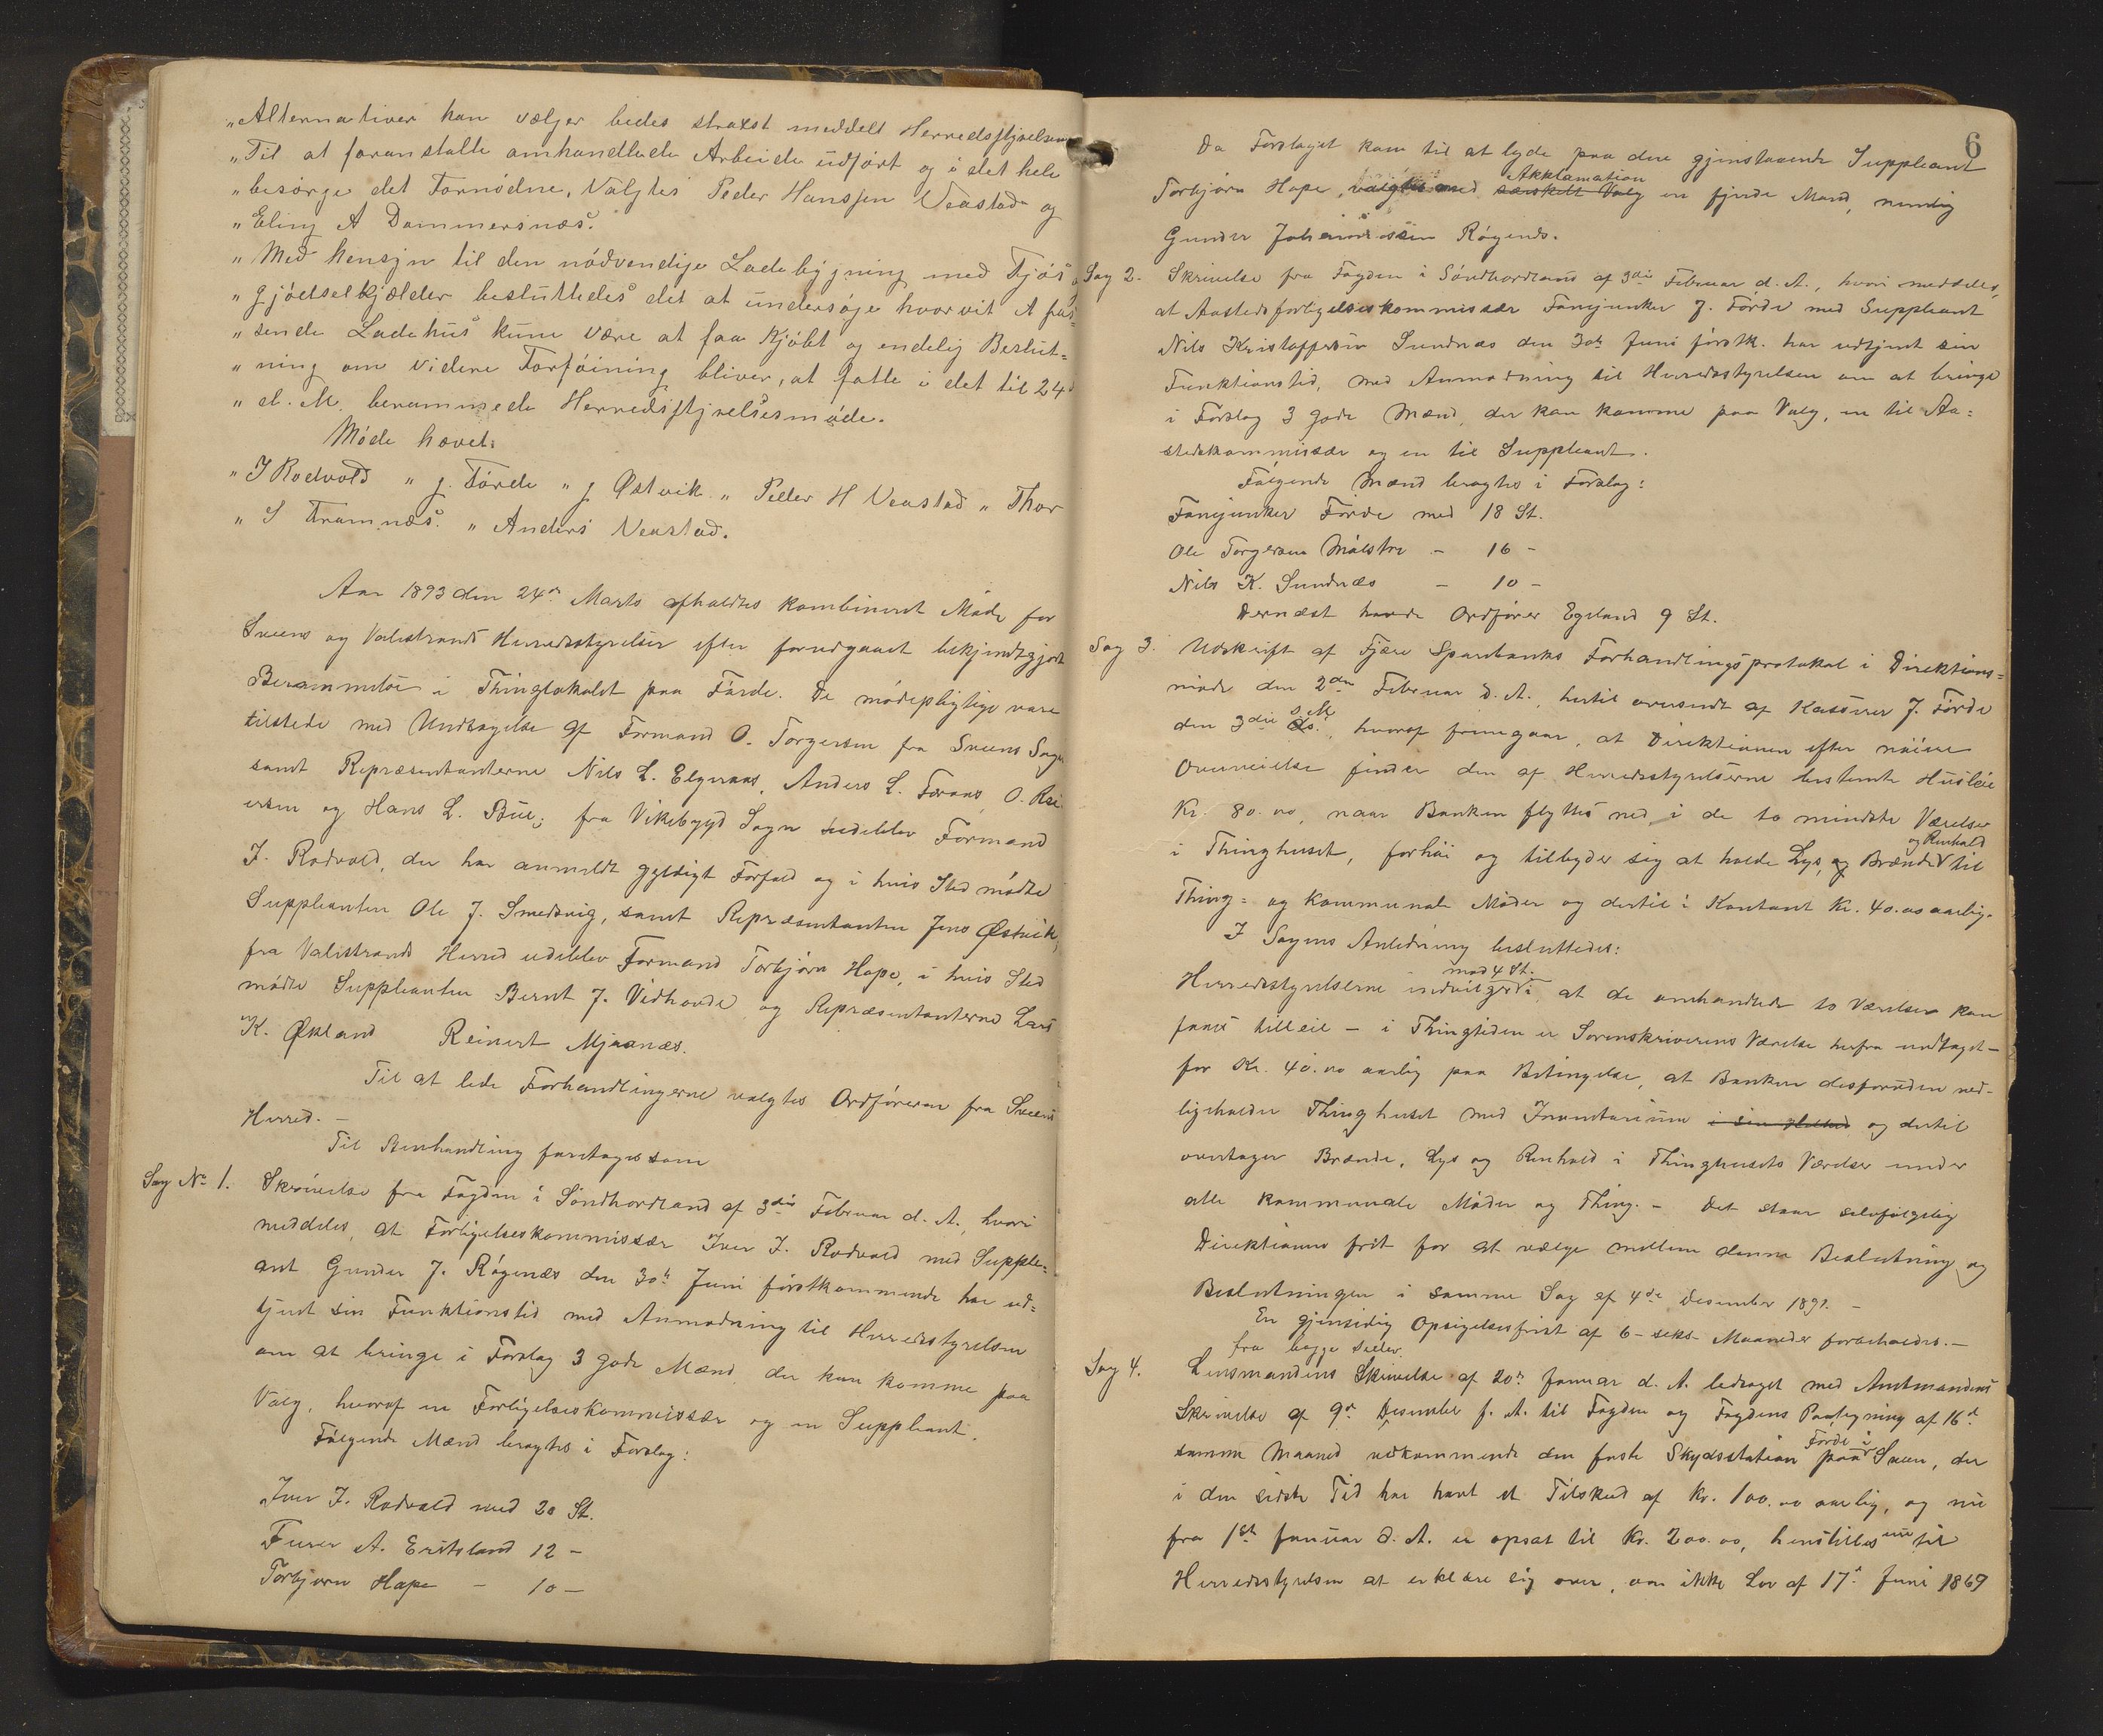 „Alternativer han vælger bedes straxt meddelt Herredsstyrelsen
„Til at foranstalte omhandlede Arbeide udført og i det hele
„besørge det Fornødne, Valgtes Peder Hanssen Veastad og
„Eling A Dommersnæs.
„Med hensyn til den nødvendige Ladebygning med Fjøs o
„gjødselkjælder besluttedes det at undersøge hvorvit A pas-
„sende Ladehus kune være at faa Kjøbt og endelig Beslut=
„ning om videre Forføining bliver, at fatte i det til 24d
„d. M. berammede Herredsstyrelsesmøde.
Møde hævet.
„I Rodvold „ J. Førde „ J Østvik „ Peder H Veastad „ Thor
„S Framnæs. „ Anders Veastad.
Aar 1893 den 24de Marts afholdtes kombineret Møde for
Sveens og Valestrands Herredsstyrelser efter forudgaaet bekjendtgjort
Berammelse i Thinglokalet paa Førde. De mødepligtige vare
tilstede med Undtagelse af Formand O. Torgersen fra Sveens Sogn
samt Repræsentanterne Nils L. Elgnaas, Anders L. Færaas, O. Rei
ersen og Hans L. Bue; fra Vikebygd Sogn udeblev Formand
I. Rodvold, der har anmeldt gyldigt Forfald og i hvis Sted mødte
Suppleanten Ole J. Smedsvig, samt Repræsentanten Jens Østvik,
fra Valestrands Herred udeblev Formand Torbjørn Hope, i hvis Sted
mødte Suppleanten Bernt J. Vidhovde og Repræsentanterne Lars
K. Økland Reinert Mjaanæs.
Til at lede Forhandlingerne valgtes Ordføreren fra Sveens
Herred. –
Til Behandling foretoges som
Sag No 1. Skrivelse fra Fogden i Søndhordland af 3die Februar d. A., hvori
meddeles, at Forligelseskommissær Iver I. Rodvold med Supple=
ant Gunder J. Røgenæs den 30te Juni førstkommende har ud=
tjent sin Funktionstid med Anmodning til Herredsstyrelsen
om at bringe i Forslag 3 gode Mænd, der kan komme paa
Valg, hvoraf en Forligelseskommissær og en Suppleant.
Følgende Mænd bragtes i Forslag:
Iver I. Rodvold med 20 St.
Furer A. Eritsland 12 –
Torbjørn Hope – 10 –
6
Da Forslaget kom til at lyde paa den gjenstaaende Suppleant
Akklamation
Torbjørn Hope, valgtes med særskilt Valg en fjerde Mand, nemlig
Gunder Johannessen Røgenæs.
Sag 2. Skrivelse fra Fogden i Søndhordland af 3die Februar d. A., hvori meddeles,
at Aastedsforligelseskommissær Fanejunker J. Førde med Suppleant
Nils Kristoffersen Sundnæs den 30te Juni førstk. har udtjent sin
Funktionstid, med Anmodning til Herredsstyrelsen om at bringe
i Forslag 3 gode Mænd, der kan komme paa Valg, en til Aa=
stedskommissær og en til Suppleant.
Følgende Mænd bragtes i Forslag:
Fanejunker Førde med 18 St.
Ole Torgersen Mølstre – 16 –
Nils K. Sundnæs – 10 –
Dernæst havde Ordfører Egeland 9 St.
Sag 3. Udskrift af Fjære Sparebanks Forhandlingsprotokol i Direktions=
møde den 2den Februar d. A., hertil oversendt af Kasserer J. Førde
s. M.
den 3die ds., hvoraf fremgaar, at Direktionen efter nøiere
Overveielse finder den af Herredsstyrelserne bestemte Husleie
Kr. 80.00, naar Banken flyttes ned i de to mindste Værelser
og Renhold
i Thinghuset, forhøi og tilbyder sig at holde Lys, og Brænde til
Thing= og kommunale Møder og dertil i Kontant Kr. 40.00 aarlig.
I Sagens Anledning besluttedes:
mod 4 St.
Herredsstyrelserne indvilger i, at de omhandlede to Værelser kan
faaes tilleie – i Thingtiden er Sorenskriverens Værelse herfra undtaget –
for Kr. 40.00 aarlig paa Betingelse, at Banken desforuden ved-
ligeholder Thinghuset med Inventarium i sin Helhed og dertil
overtager Brænde, Lys og Renhold i Thinghusets Værelser under
alle kommunale Møder og Thing. – Det staar selvfølgelig
Direktionen frit for at vælge mellem denne Beslutning og
Beslutningen i samme Sag af 4de Desember 1891. –
En gjensidig Opsigelsesfrist af 6 – seks – Maaneder forbeholdes. –
fra begge Sider.
Sag 4. Lensmandens Skrivelse af 20de Januar d. A. ledsaget med Amtmandens
Skrivelse af 9de Desember f. A. til Fogden og Fogdens Paategning af 16de
Førde i
samme Maaned vedkommende den faste Skydsstation paa Sveen, der
i den sidste Tid har havt et Tilskud af Kr. 100.00 aarlig, og nu
fra 1ste Januar d. A. er opsat til Kr. 200.00, henstilles nu til
Herredsstyrelsen at erklære sig over, om ikke Lov af 17de Juni 1869